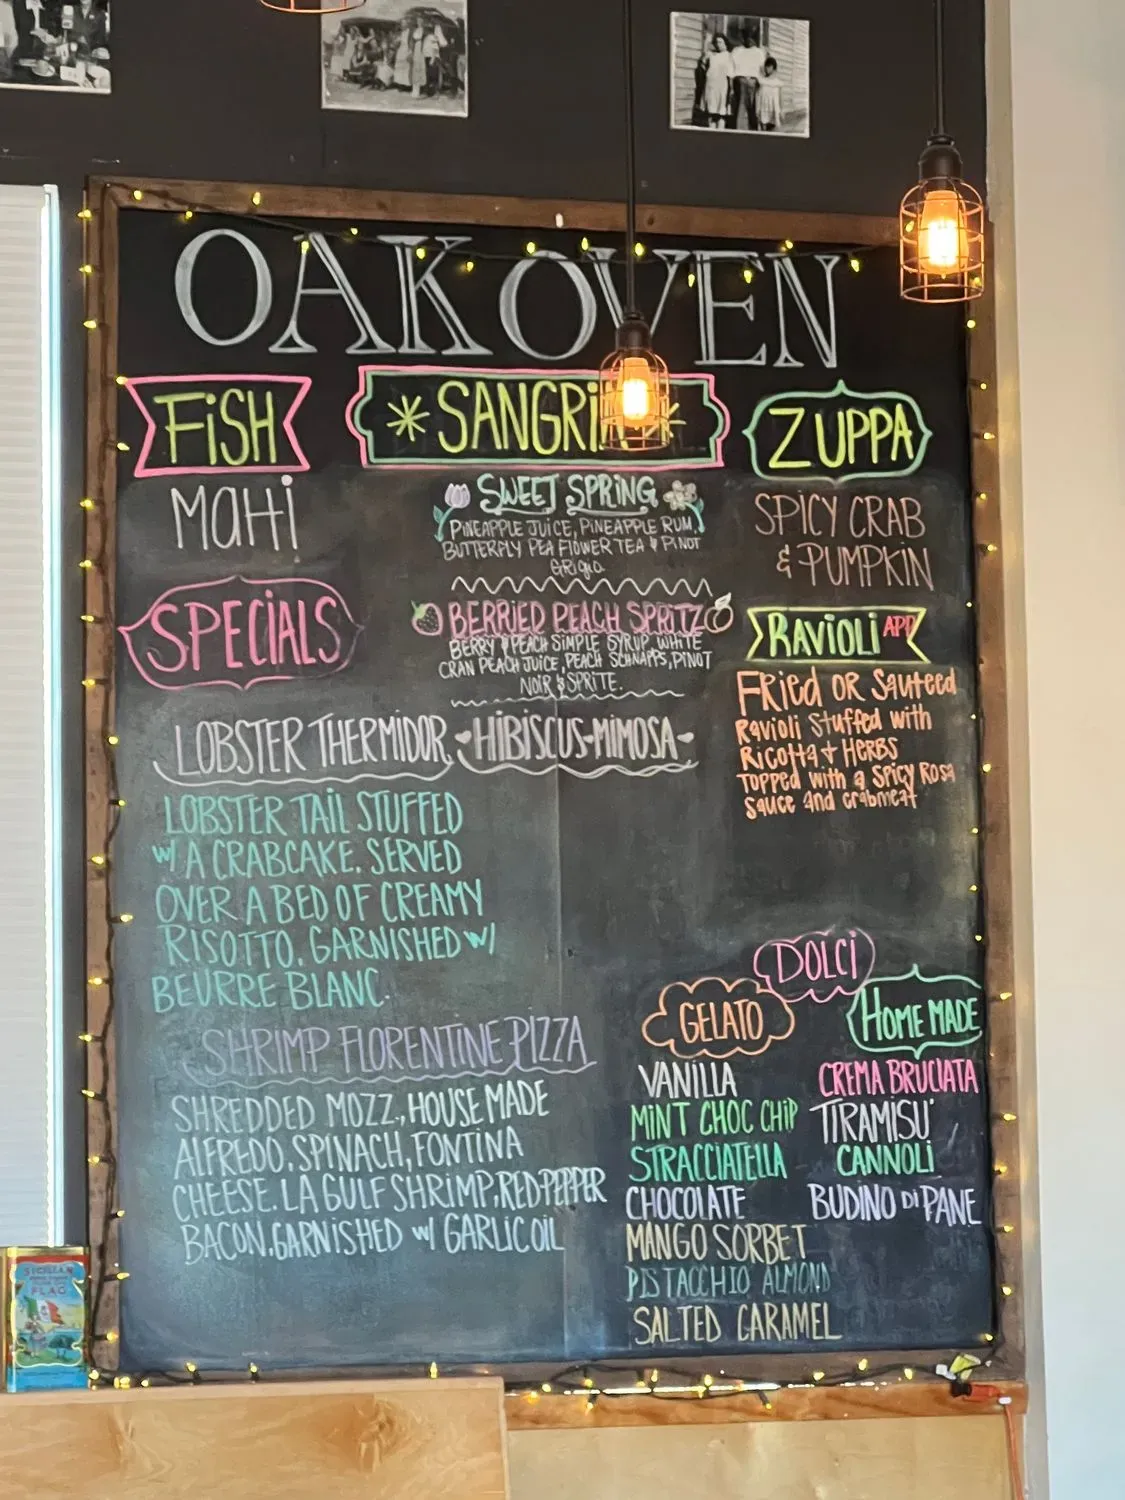 OAK OVEN
FiSH
MaHi
SPECiALS
LOBSTER THERMIDOR
LOBSTER TAIL STUFFED
W/ A CRABCAKE. SERVED
OVER A BED OF CREAMY
RISOTTO. GARNISHED W/
BEURRE BLANC.
SHRIMP FLORENTINE PIZZA
SHREDDED MOZZ., HOUSE MADE
ALFREDO, SPINACH, FONTINA
CHEESE. LA GULF SHRIMP, RED PEPPER
BACON, GARNISHED W/ GARLIC OIL
SWEET SPRING
PINEAPPLE JUICE, PINEAPPLE RUM,
BUTTERFLY PEA FLOWER TEA & PINOT
GRIGIO.
BERRIED PEACH SPRITZ
BERRY & PEACH SIMPLE SYRUP, WHITE
CRAN PEACH JUICE, PEACH SCHNAPPS, PINOT
NOIR & SPRITE.
HIBISCUS-MIMOSA
ZUPPA
SPICY CRAB
& PUMPKIN
RAVIOLI APP
FRied OR Sauteed
Ravioli Stuffed with
Ricotta + HERBS
Topped with a Spicy Rosa
Sauce and crabmeat
DOLCI
GELATO
VANILLA
MINT CHOC CHIP
STRACCIATELLA
CHOCOLATE
MANGO SORBET
PISTACCHIO ALMOND
SALTED CARAMEL
HOME MADE
CREMA BRUCIATA
TIRAMISU'
CANNOLI
BUDINO Di PANE
SICILIAN
FLAG